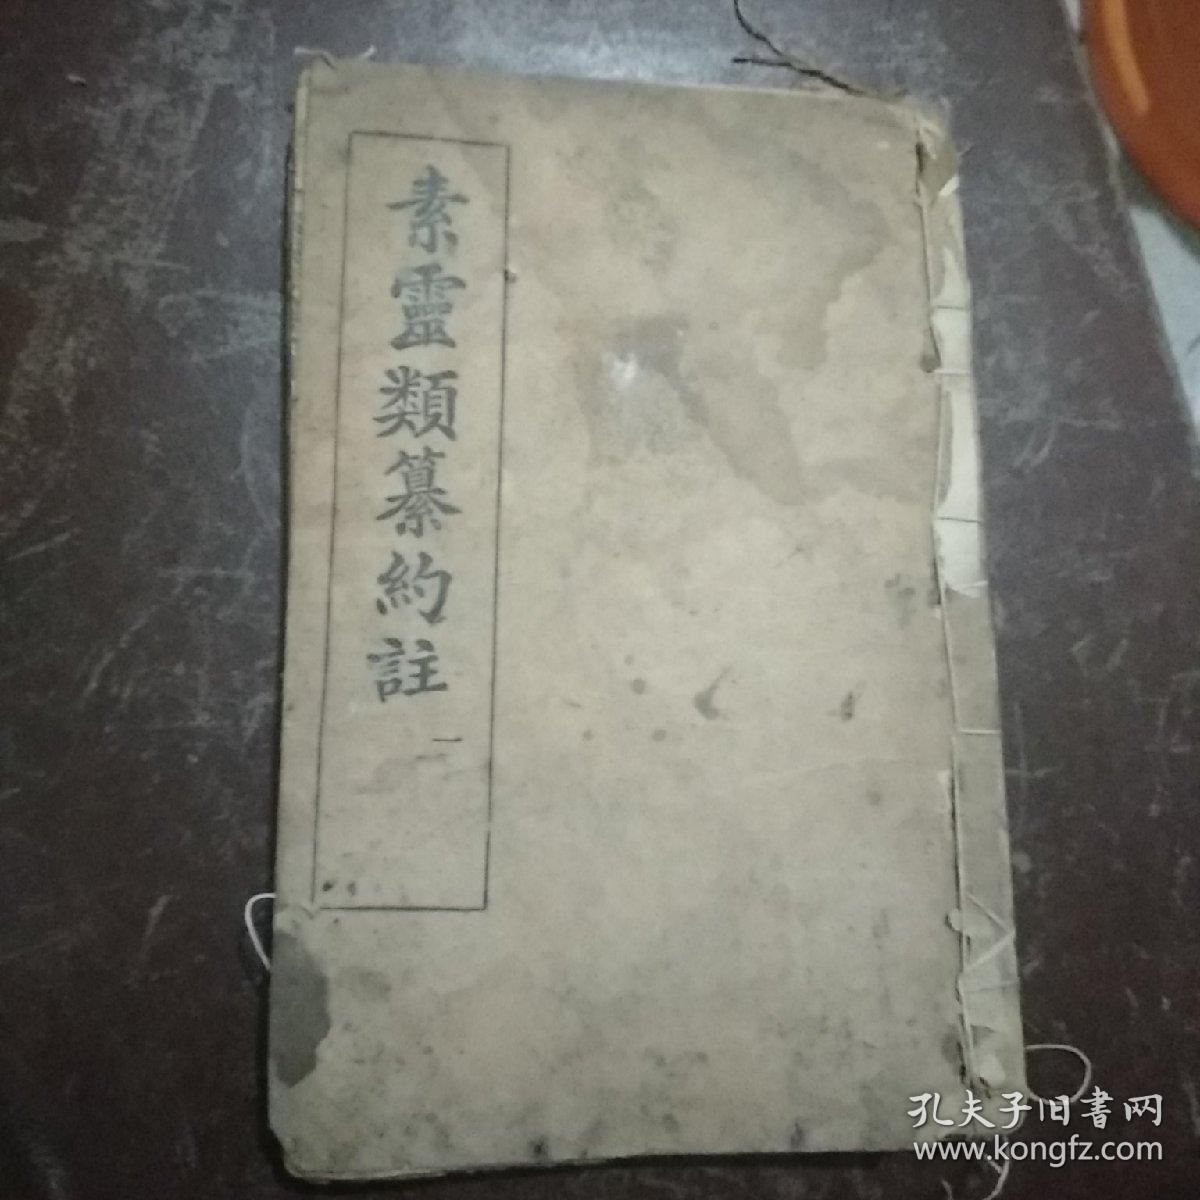 素靈類纂約註
一
孔夫子旧書网
www.kongfz.com